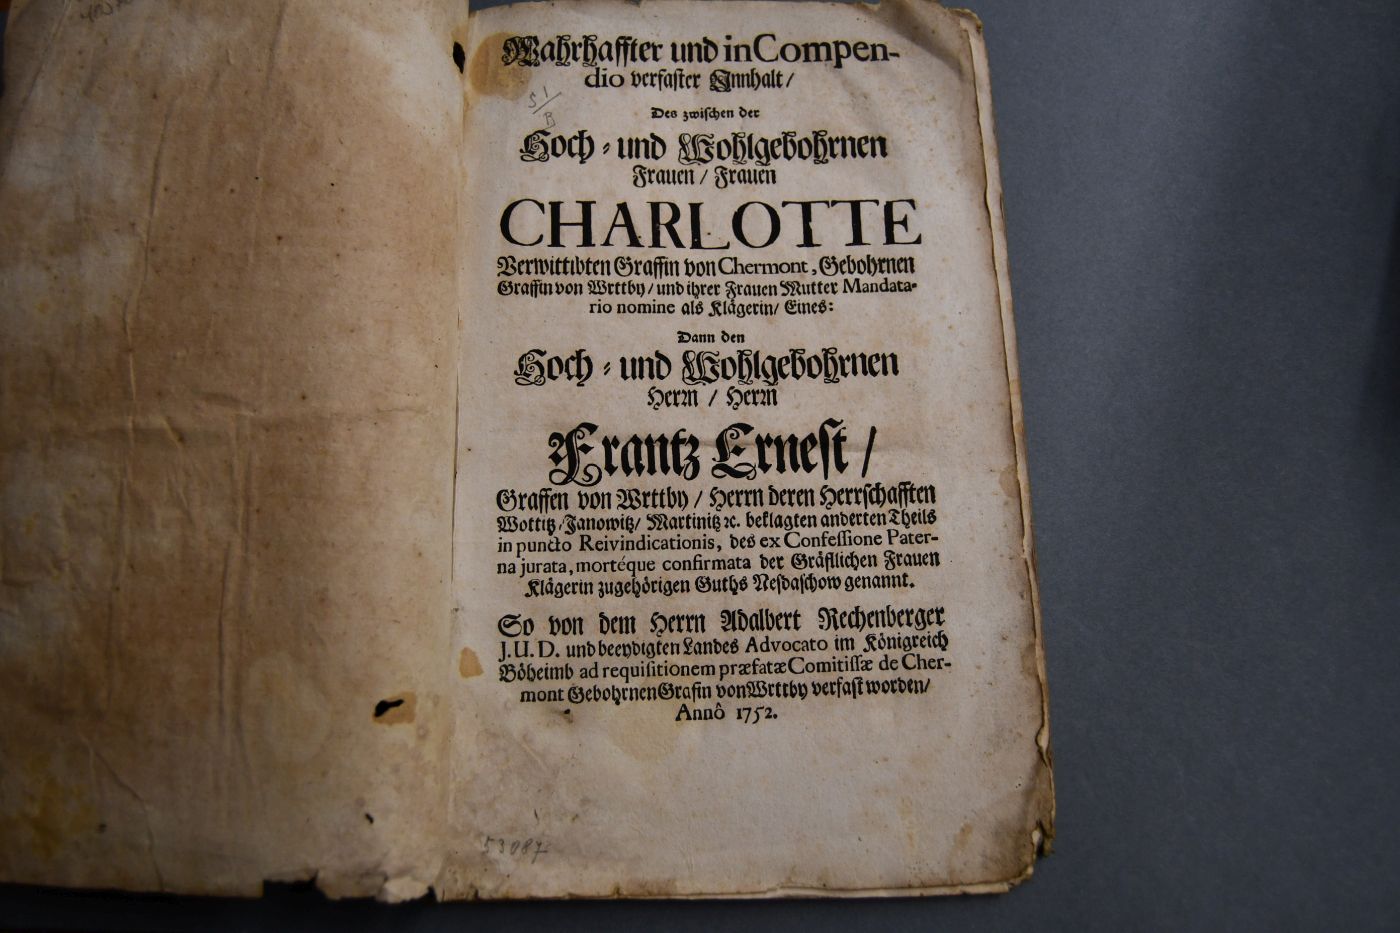 Wahrhaffter und in Compen-
dio verfaster Innhalt/
51/B
Des zwischen der
Hoch- und Wohlgebohrnen
Frauen / Frauen
CHARLOTTE
Verwittibten Graffin von Chermont, Gebohrnen
Graffin von Wrttby/ und ihrer Frauen Mutter Mandata-
rio nomine als Klägerin/ Eines:
Dann den
Hoch- und Wohlgebohrnen
Herrn / Herrn
Frantz Ernest /
Graffen von Wrttby/ Herrn deren Herrschafften
Wottitz/Janowitz/ Martinitz ꝛc. beklagten anderten Theils
in puncto Reivindicationis, des ex Confessione Pater-
na jurata, mortéque confirmata der Gräfllichen Frauen
Klägerin zugehörigen Guths Nesdaschow genannt.
So von dem Herrn Adalbert Rechenberger
J.U.D. und beeydigten Landes Advocato im Königreich
Böheimb ad requisitionem præfatæ Comitissæ de Cher-
mont Gebohrnen Grafin von Wrttby verfast worden/
Annô 1752.
53087